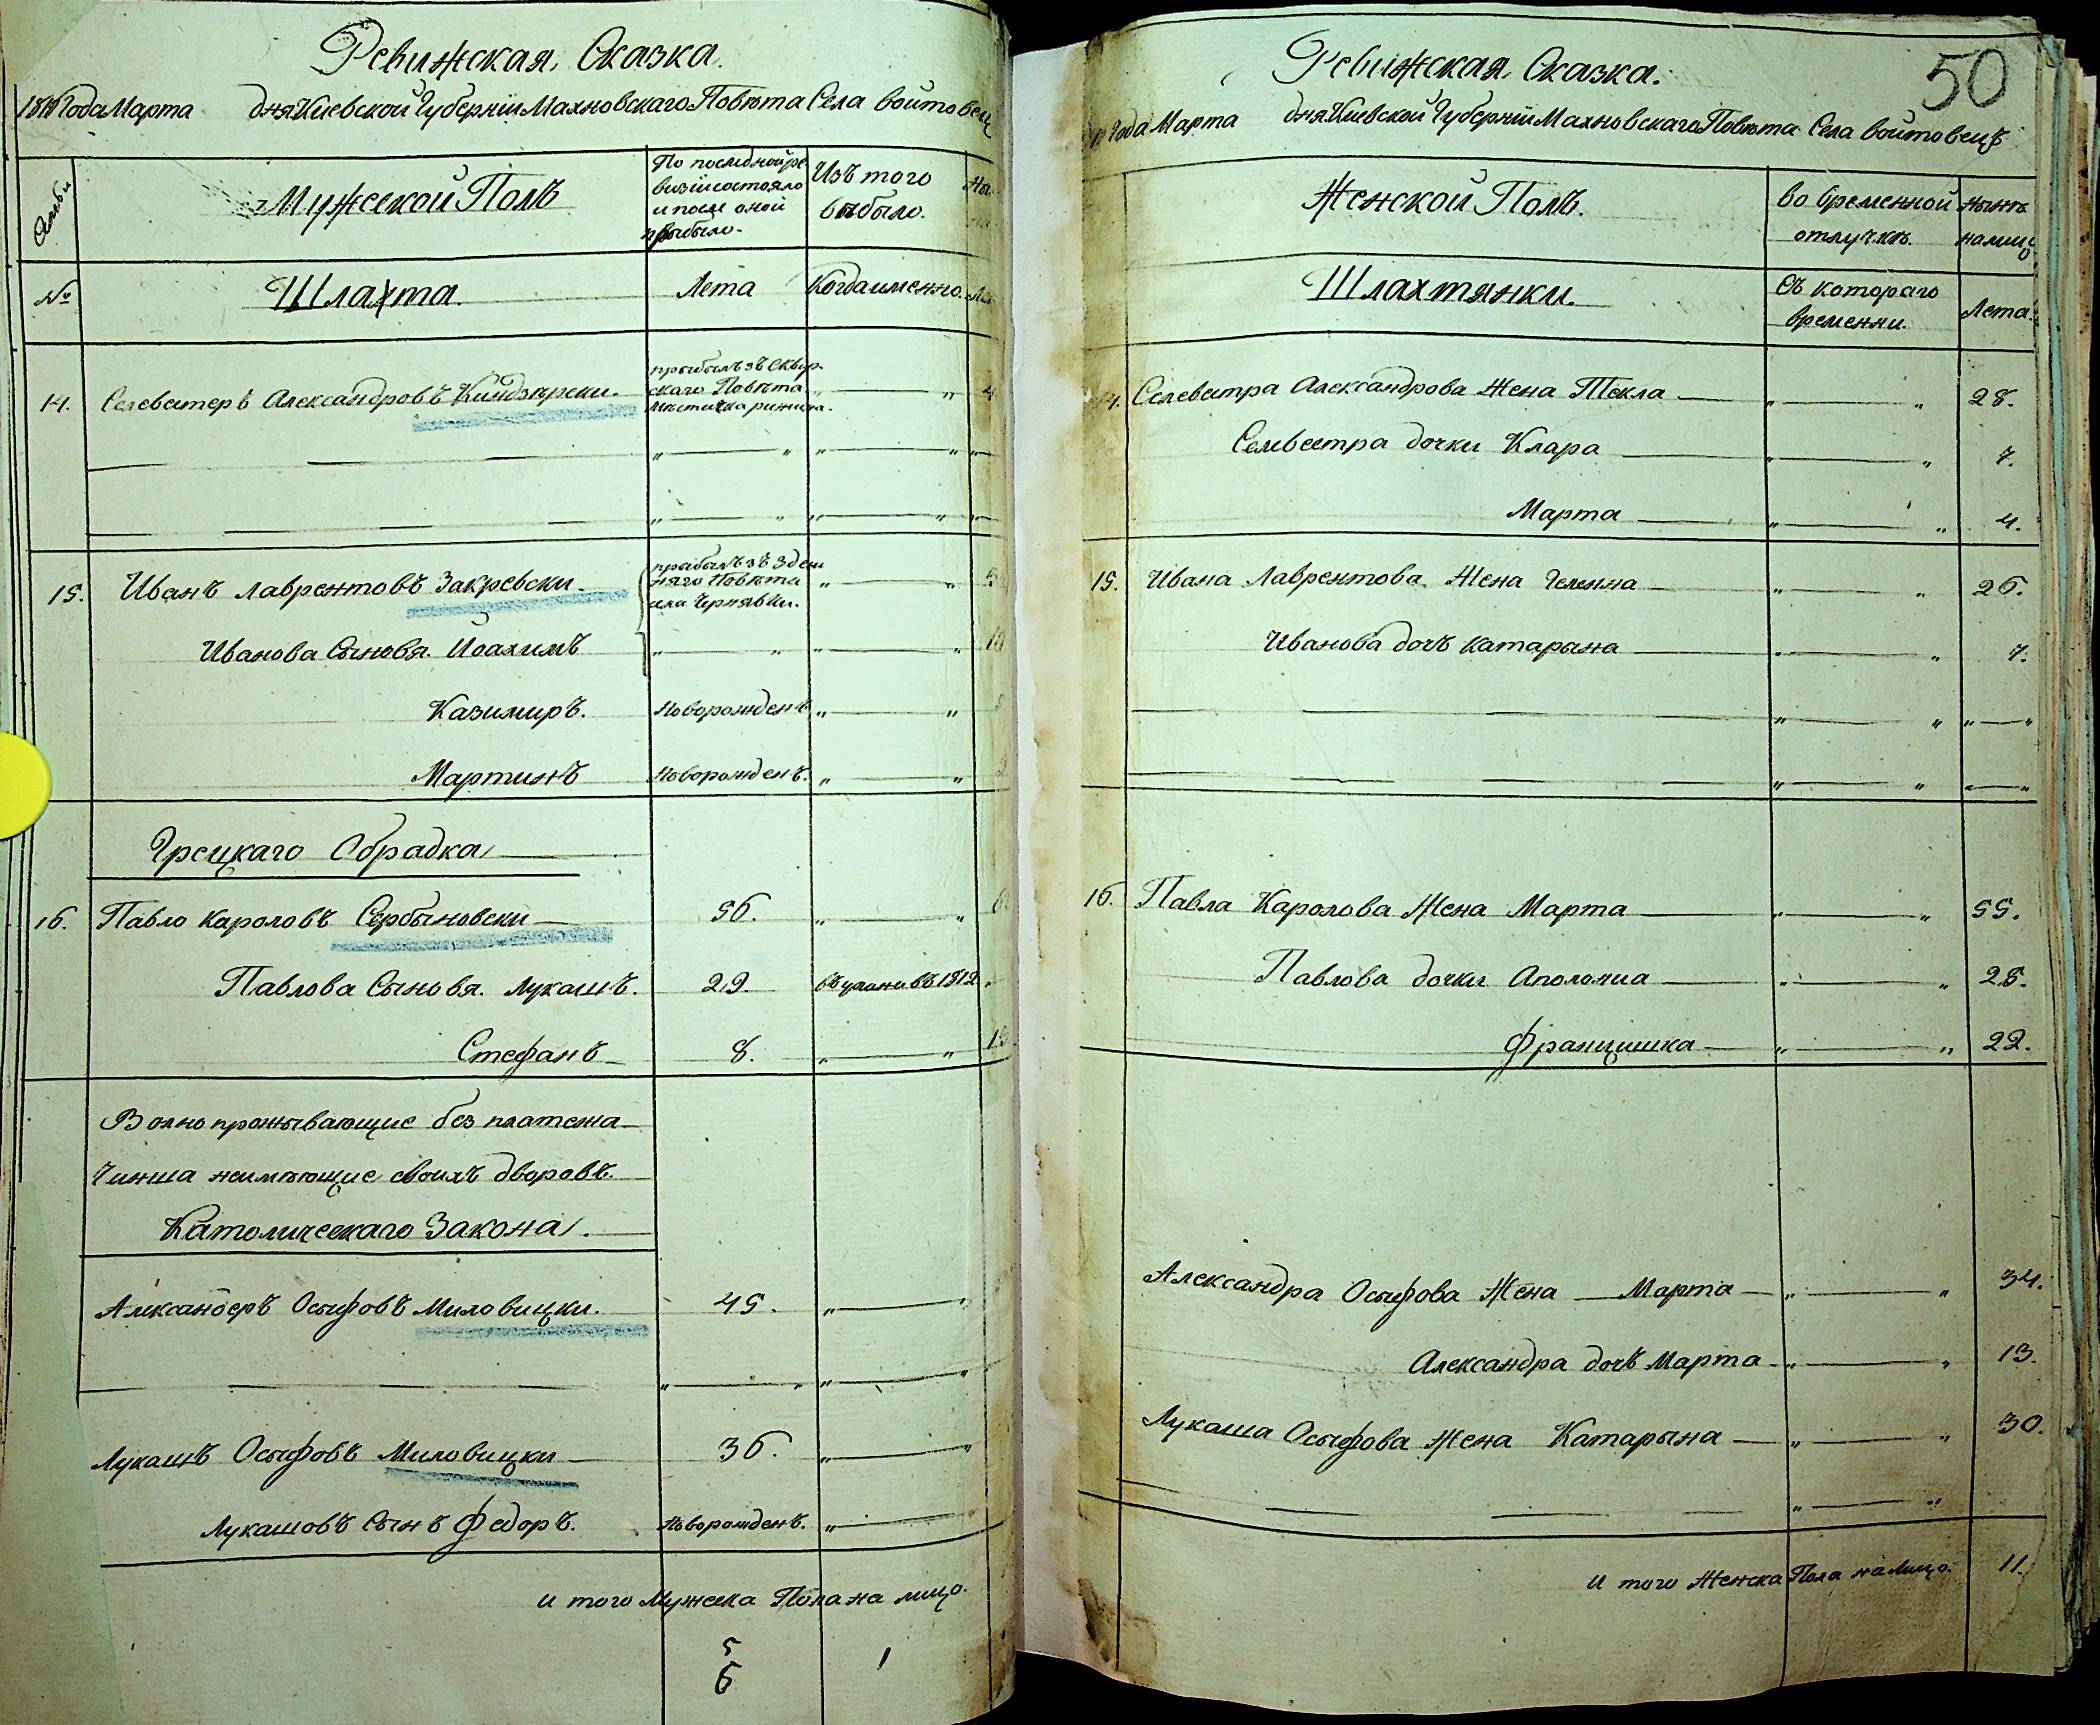 Ревижская Сказка.
Года Марта дня Киевской Губерніи Махновскаго Повѣта Села Войтовец
Мужеской Полъ
По последной ре
визіи состояло
и после оной
прыбыло.
Изъ того
выбыло.
№
Шлахта.
Лета
Когда именно.
14. Селевестеръ Александровъ
прыбылъ зъ Сквир
скаго Повѣта
15. Иванъ Лаврентовъ Закревски.
прыбылъ зъ Здеш
няго Повѣта
села Чернявки.
Иванова Сыновя. Иоахимъ 10
Казимиръ. Новорожденъ
Мартинъ Новорожденъ.
Грецкаго Обрадка
16. Павло Кароловъ Сербыновски 56.
Павлова Сыновя. Лукашъ. 29. въ 1812
Стефанъ 8.
Волно прожывающие без платежа
Чинша неимѣющие своихъ дворовъ.
Католическаго Закона.
Александеръ Осыфовъ Миловицки. 45.
Лукашъ Осыфовъ Миловицки 36.
Лукашовъ Сынъ Федоръ. Новорожденъ.
и того Мужеска Пола на лицо.
5 1
6
50
Ревижская Сказка.
Года Марта дня Киевской Губерніи Махновскаго Повѣта Села Войтовецъ
Женской Полъ.
во временной
отлучкѣ.
нынѣ
налицо
Шлахтянки.
Съ котораго
времени.
Лета.
14. Селевестра Александрова Жена Текла 28.
Селевестра дочки Клара 7.
Марта 4.
15. Ивана Лаврентова Жена Геленна 26.
Иванова дочъ Катарына 7.
16. Павла Каролова Жена Марта 55.
Павлова дочки Аполониа 25.
Францишка 22.
Александра Осыфова Жена Марта 34.
Александра дочъ Марта 13.
Лукаша Осыфова Жена Катарына 30.
и того Женска Пола на лицо. 11.